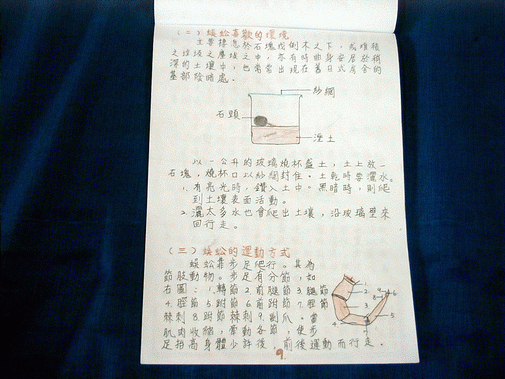 (二) 蜈蚣喜歡的環境
主要棲息於石塊或倒木之下,或堆積
之垃圾之塵埃之中,亦有時曲身安居於稍
深的土壤中,也常常出現在舊日式房舍的
基部陰暗處。
紗網
石頭
溼土
以一公升的玻璃燒杯盛土,土上放一
石塊,燒杯口以紗網封住。土乾時要灑水。
1. 有亮光時,鑽入土中。黑暗時,則爬
到土壤表面活動。
2. 灑太多水也會爬出土壤,沿玻璃壁來
回行走。
(三) 蜈蚣的運動方式
蜈蚣靠步足爬行。其為
節肢動物。步足有分節,如
右圖:1.轉節 2.前腿節 3.腿節
4.脛節 5.跗節 6.前跗節 7.脛節
棘刺 8.跗節棘刺 9.副爪。當
肌肉收縮,帶動各節,使步
足抬高身體少許後,前後運動而行走。
1
2
3
4
5
6
7
8
9
9